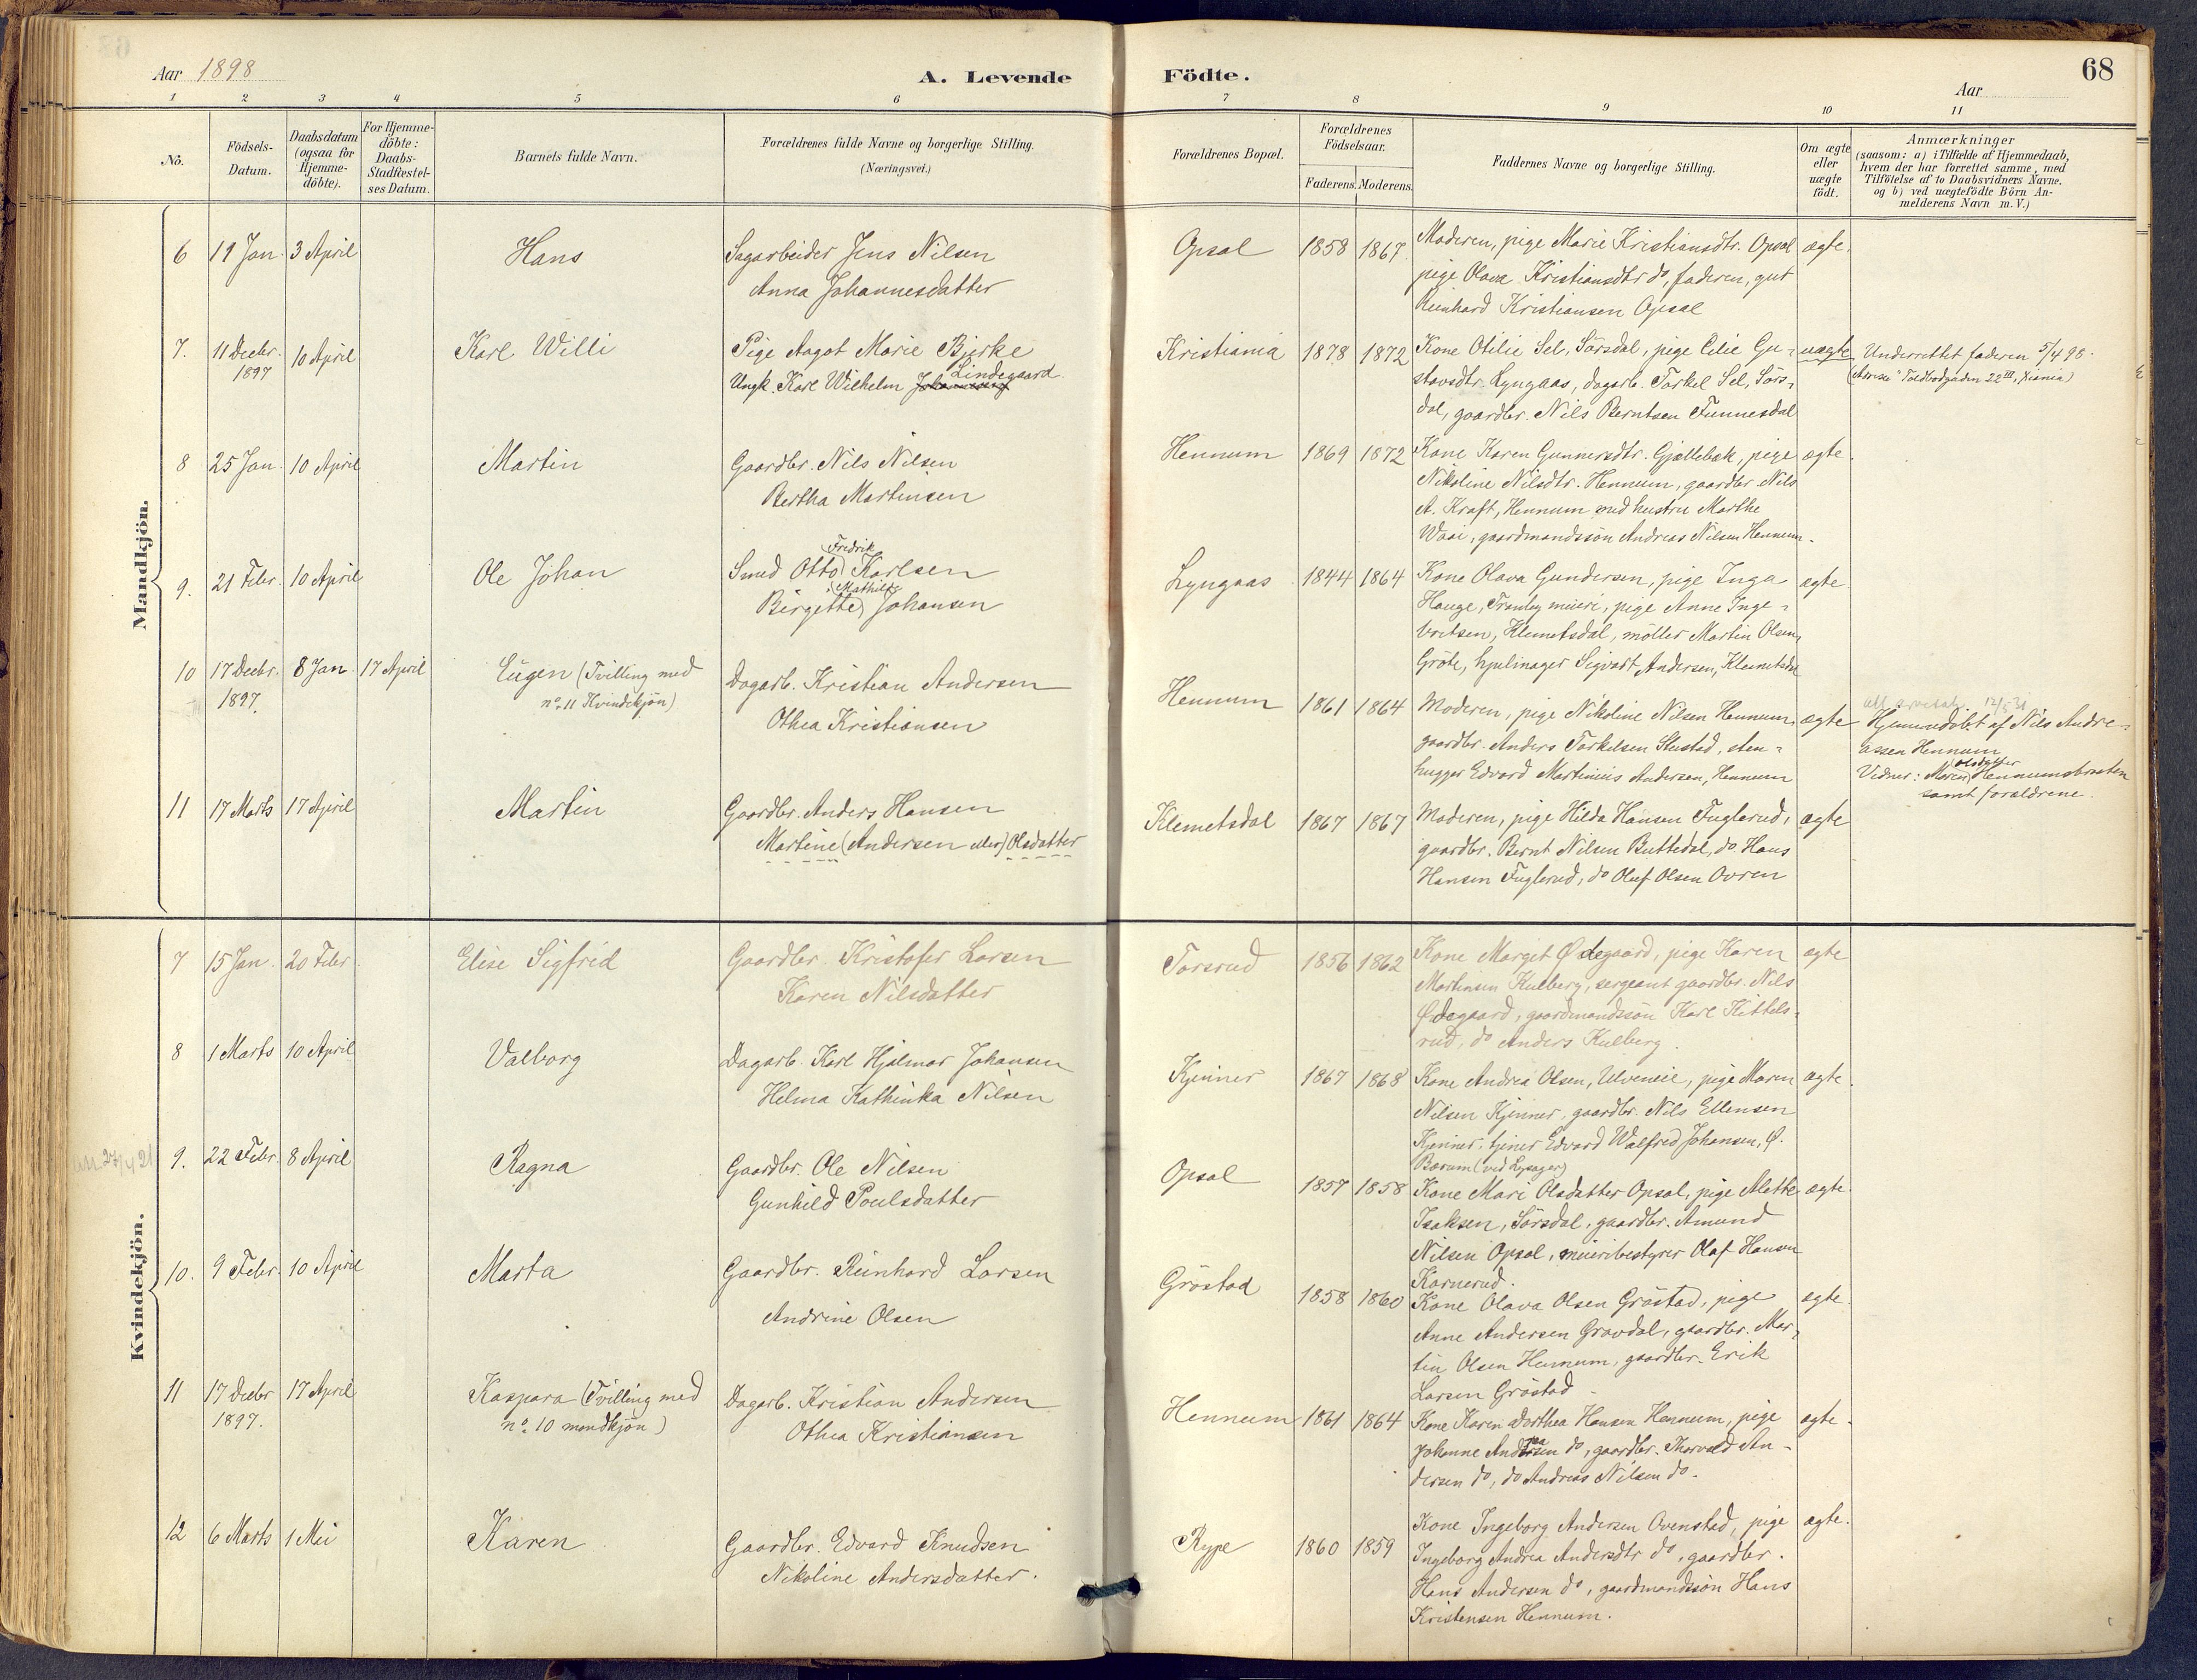 Aar 1898
A. Levende Födte.
Aar
68
1 2 3 4 5 6 7 8 9 10 11
Nô.
Födsels-
Datum.
Daabsdatum
(ogsaa for
Hjemme-
döbte).
For Hjemme-
döbte:
Daabs-
Stadfestel-
ses Datum.
Barnets fulde Navn.
Forældrenes fulde Navne og borgerlige Stilling.
(Næringsvei.)
Forældrenes Bopæl.
Forældrenes
Födselsaar.
Faderens. Moderens.
Faddernes Navne og borgerlige Stilling.
Om ægte
eller
uægte
födt.
Anmærkninger
(saasom: a) i Tilfælde af Hjemmedaab,
hvem der har forrettet samme, med
Tilföielse af to Daabsvidners Navne.
og b) ved uægtefödte Börn An-
melderens Navn m. V.)
Mandkjön.
6 19 Jan. 3 April Hans
Sagarbeider Jens Nilsen
Anna Johannesdatter
Opsal 1858 1867
Moderen, pige Marie Kristiansdtr. Opsal
pige Olava Kristiansdtr do, faderen, gut
Reinhard Kristiansen Opsal
ægte.
7. 11 Decbr. 1897 10 April Karl Willi
Pige Aagot Marie Bjerke
Lindegaard
Ungk. Karl Wilhelm
Kristiania 1878 1872
Kone Otilie Sel, Sörsdal, pige Celie Gu-
stavsdtr. Lyngaas, dagarb. Torkel Sel, Sörs-
dal, gaardbr. Nils Berntsen Tunnesdal
uægte
Underrettet faderen 5/4 98.
(Adresse "Toldbodgaden 22 III, Xiania)
8 25 Jan. 10 April Martin
Gaardbr. Nils Nilsen
Bertha Martinsen
Hennum 1869 1872
Kone Karen Gunnersdtr. Gjellebæk, pige
Nikoline Nilsdtr. Hennum, gaardbr. Nils
A. Kraft, Hennum med hustru Marthe
Waai, gaardmandssön Andreas Nilsen Hennum.
ægte.
9. 21 Febr. 10 April Ole Johan
Fredrik
Smed Otto Karlsen
Mathilde
Birgette Johansen
Lyngaas 1844 1864
Kone Olava Gundersen, pige Inga
Hauge, Tranby meieri, pige Anne Inge-
bretsen, Klemetsdal, möller Martin Olsen,
Gröte, hjulmager Sigvart Andersen, Klemetsdal
ægte
10 17 Decbr. 1897. 8 Jan 17 April
Eugen (Tvilling med
no. 11 Kvindekjön)
Dagarb. Kristian Andersen
Othea Kristiansen
Hennum 1861 1864
Moderen, pige Nikoline Nilsen Hennum,
gaardbr. Anders Torkelsen Stustad, sten-
hugger Edvard Martinius Andersen, Hennum
ægte
Hjemmedöbt af Nils Andre-
assen Hennum
Olsdatter
Vidner: Maren Hennumsbraaten
samt forældrene.
11 17 Marts 17 April Martin
Gaardbr. Anders Hansen
Martine (Andersen eller) Olsdatter
Klemetsdal 1867 1867
Moderen, pige Hilda Hansen Fuglerud,
gaardbr. Bernt Nilsen Buttedal, do Hans
Hansen Fuglerud, do Oluf Olsen Ovren
ægte
Kvindekjön.
7 15 Jan. 20 Febr. Elise Sigfrid
Gaardbr. Kristofer Larsen
Karen Nilsdatter
Torsrud 1856 1862
Kone Margit Ødegaard, pige Karen
Martinsen Kulberg, sergeant gaardbr. Nils
Ødegaard, gaardmandssön Karl Kittels-
rud, do Anders Kulberg.
ægte
8 1 Marts 10 April Valborg
Dagarb. Karl Hjalmar Johansen
Helma Kathinka Nilsen
Kjenner 1867 1868
Kone Andrea Olsen, Ulveneie, pige Maren
Nilsen Kjenner, gaardbr. Nils Ellensen
Kjenner, tjener Edvard Walfred Johansen, Ø.
Bærum (ved Lysager)
ægte.
9. 22 Febr. 8 April Ragna
Gaardbr. Ole Nilsen
Gunhild Poulsdatter
Opsal 1857 1858
Kone Mari Olsdatter Opsal, pige Alette
Isaksen, Sörsdal, gaardbr. Amund
Nilsen Opsal, meieribestyrer Olaf Hansen
Karnerud.
ægte.
10. 9 Febr. 10 April Marta
Gaardbr. Reinhard Larsen
Andrine Olsen
Gröstad 1858 1860
Kone Olava Olsen Gröstad, pige
Anne Andersen Gravdal, gaardbr. Mar-
tin Olsen Hennum, gaardbr. Erik
Larsen Gröstad
ægte.
11 17 Decbr 1897. 17 April
Kaspara (Tvilling med
no. 10 mandkjön)
Dagarb. Kristian Andersen
Othea Kristiansen
Hennum 1861 1864
Kone Karen Dorthea Hansen Hennum, pige
Johanne do, gaardbr. Thorvald An-
dersen do, do Andreas Nilsen do.
ægte.
12 6 Marts 1 Mai Karen
Gaardbr. Edvard Knudsen
Nikoline Andersdatter.
Rype 1860 1859
Kone Ingeborg Andersen Ovenstad, pige
Ingeborg Andrea Andersdtr do, gaardbr.
Hans Andersen do, gaardmandssön Hans
Kristensen Hennum.
ægte.